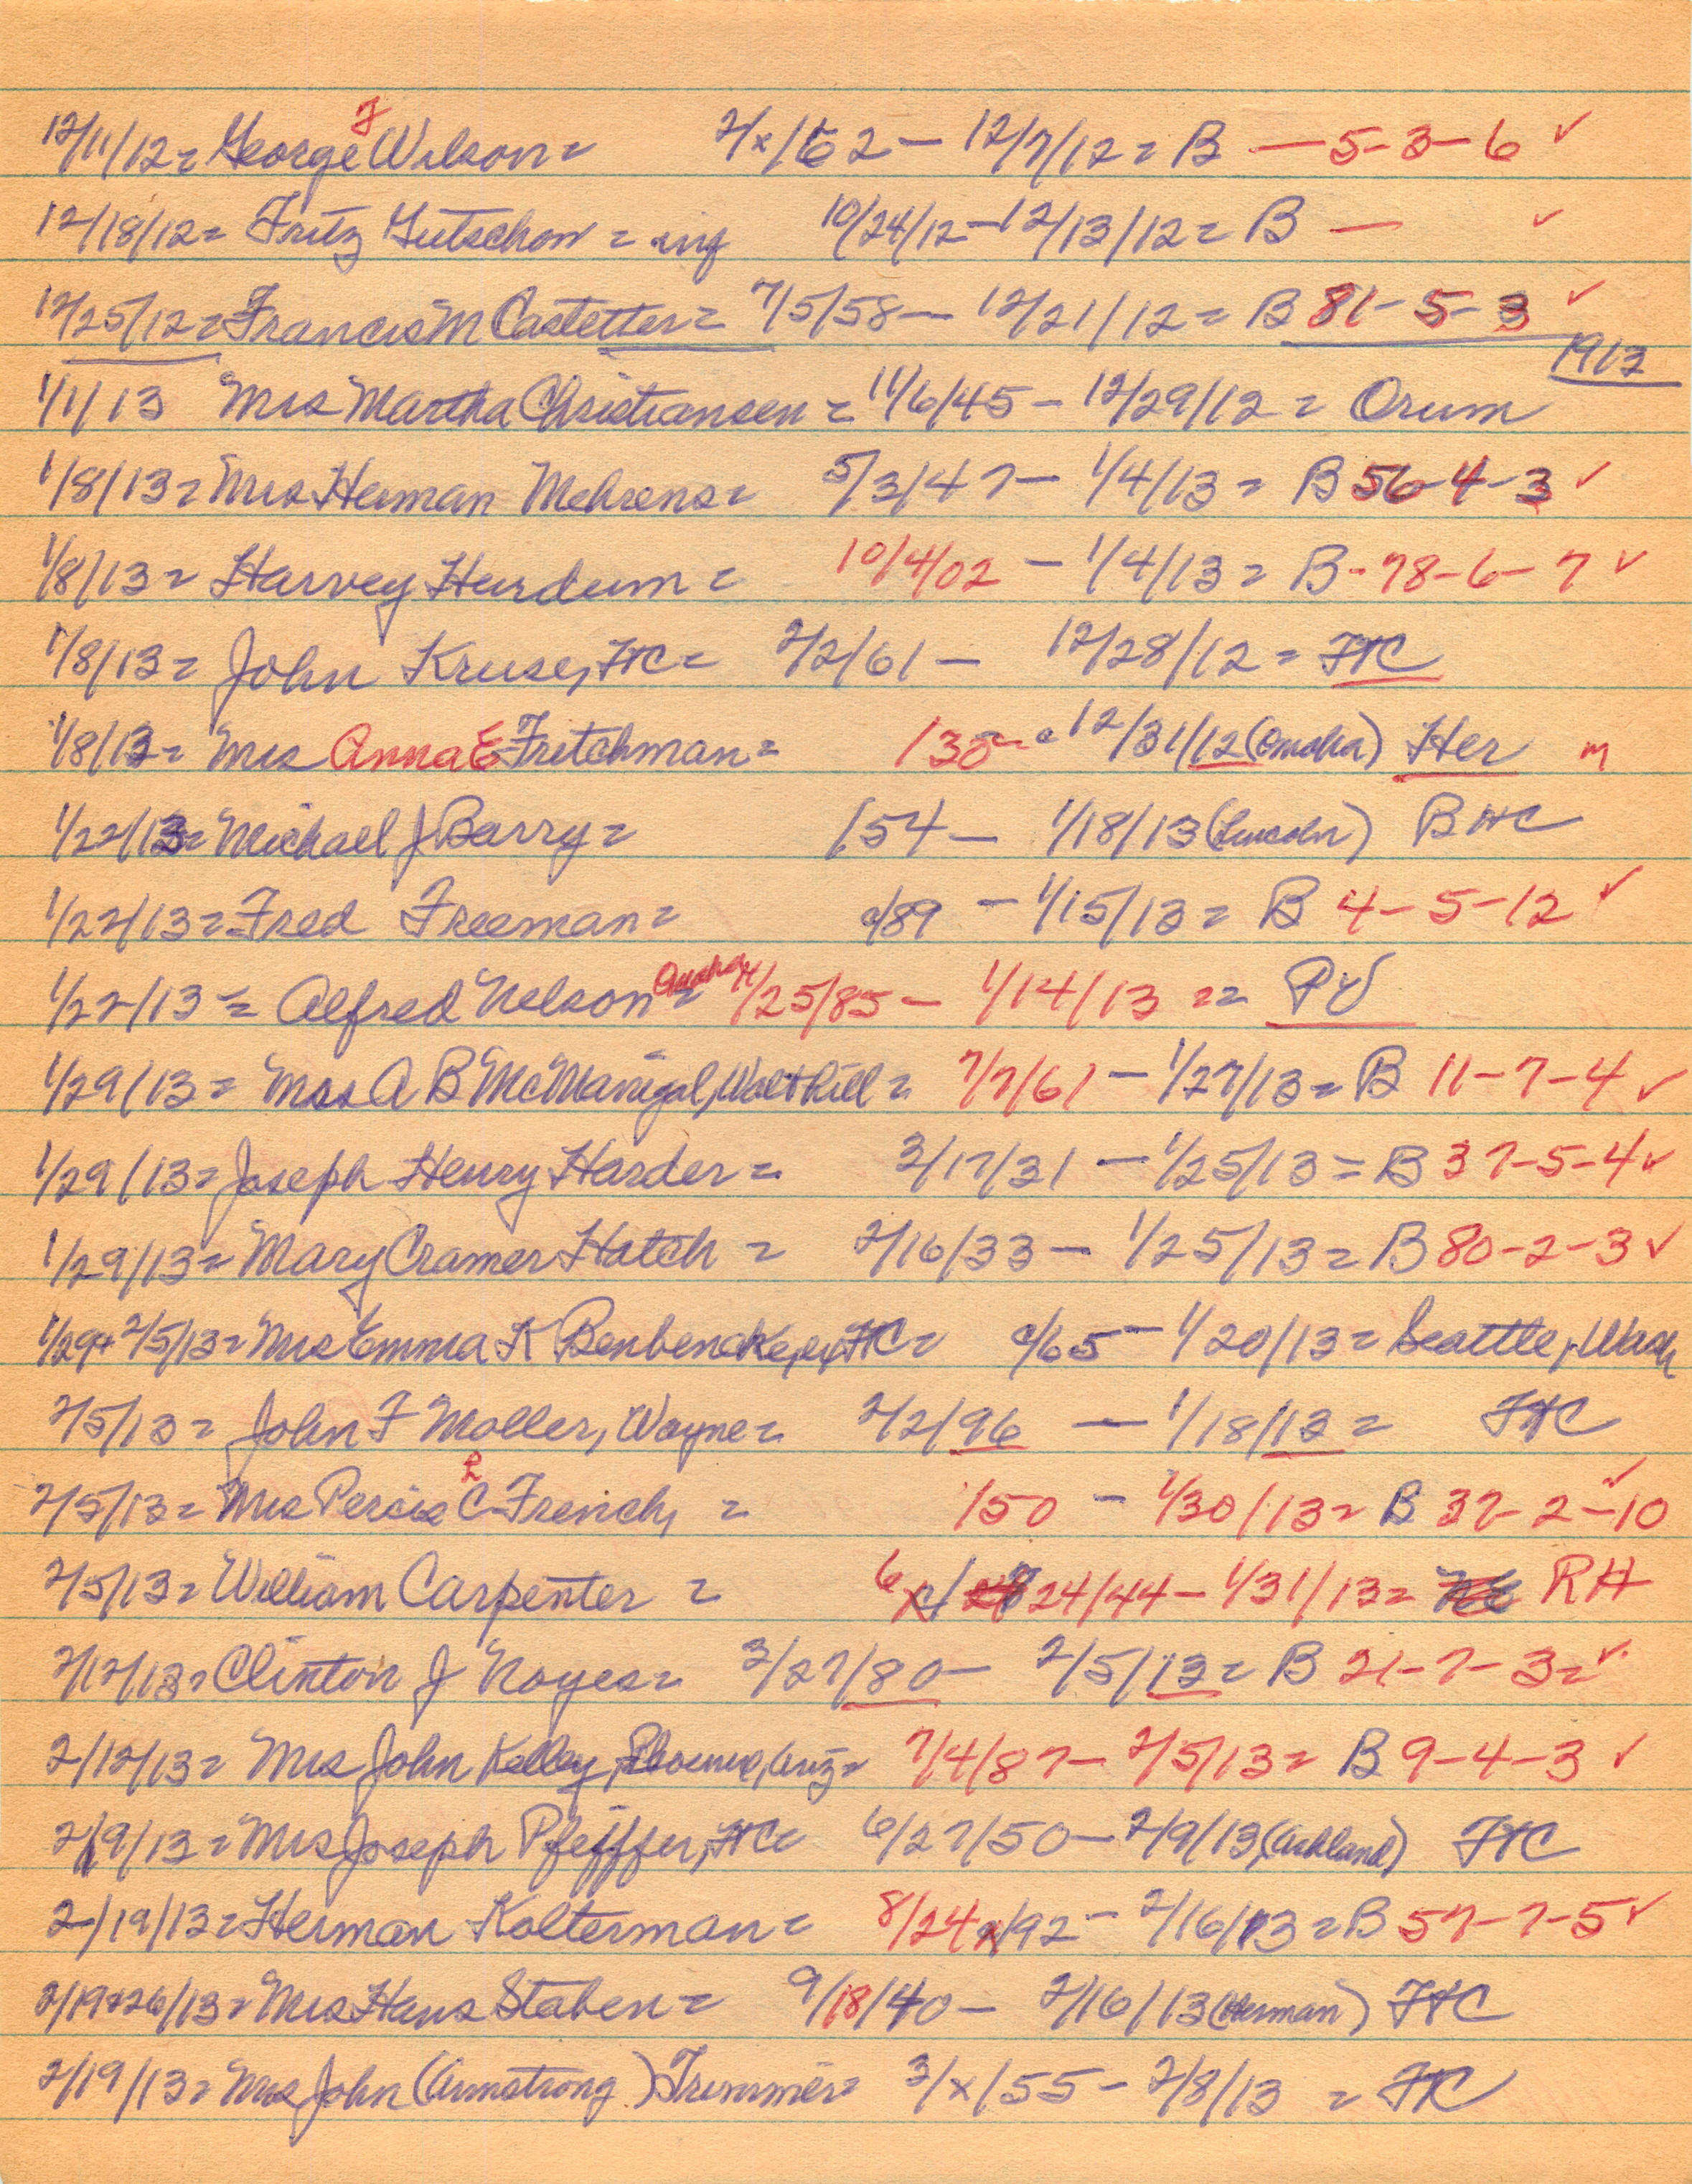 12/11/12= George F Wilson= 2/x/62 — 12/7/12= B — 5-3-6 ✓
12/18/12= Fritz Gutschow = inf 10/24/12—12/13/12= B — ✓
12/25/12= Francis M Castetter= 7/5/58— 12/21/12= B 81-5-3 ✓
1913
1/1/13 Mrs Martha Christiansen = 11/6/45- 12/29/12= Orum
1/8/13= Mrs Herman Mehrens= 5/3/47- 1/4/13= B 56-4-3 ✓
1/8/13= Harvey Hurdum= 10/4/02 - 1/4/13= B-78-6-7 ✓
1/8/13= John Kruse, FtC= 2/2/61- 12/28/12= FtC
1/8/13= Mrs Anna E Fritchman= 12/31/12 (Omaha) Her m
1/22/13= Michael J Barry= /54- 1/18/13 (Lincoln) B HC
1/22/13= Fred Freeman= c/89 - 1/15/13= B 4-5-12 ✓
1/22/13= Alfred Nelson Omaha= 4/25/85- 1/14/13 == PV
1/29/13= Mrs A B McManigal, Walthill= 7/7/61-1/27/13= B 11-7-4 ✓
1/29/13= Joseph Henry Harder= 3/17/31 -1/25/13= B 37-5-4 ✓
1/29/13= Mary Cramer Hatch = 2/16/33- 1/25/13= B 80-2-3 ✓
1/29+2/5/13= Mrs Emma K ex FtC= c/65-1/20/13= Seattle, Wash
2/5/13= John F Moller, Wayne= 2/2/96 - 1/18/13= FtC
2/5/13= Mrs Persis R C French, = /50 - 1/30/13= B 37-2-10 ✓
2/5/13= William Carpenter = 6/24/44-1/31/13= RH
2/12/13= Clinton J Noyes= 3/27/80- 2/5/13= B 21-7-3= ✓
2/12/13= Mrs John Kelley, Phoenix, Ariz= 7/4/87- 2/5/13= B 9-4-3 ✓
2/19/13= Mrs Joseph Pfeiffer, FtC= 6/27/50-2/9/13, (Ashland) FtC
2/19/13= Herman Kolterman= 8/24/92- 2/16/13= B 57-7-5 ✓
2/19+26/13= Mrs Hans Staben= 9/18/40- 2/16/13 (Herman) FtC
2/19/13= Mrs John (Armstrong) Trimmer= 3/x/55- 2/8/13 = FtC